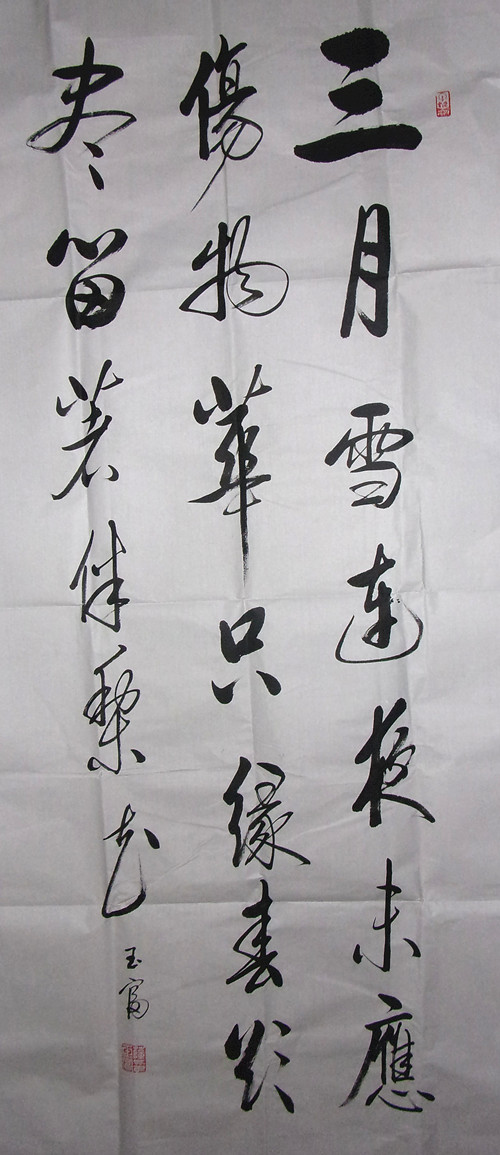 三月雪連夜未應
傷物華只緣春欲
尽留著伴梨花
玉富